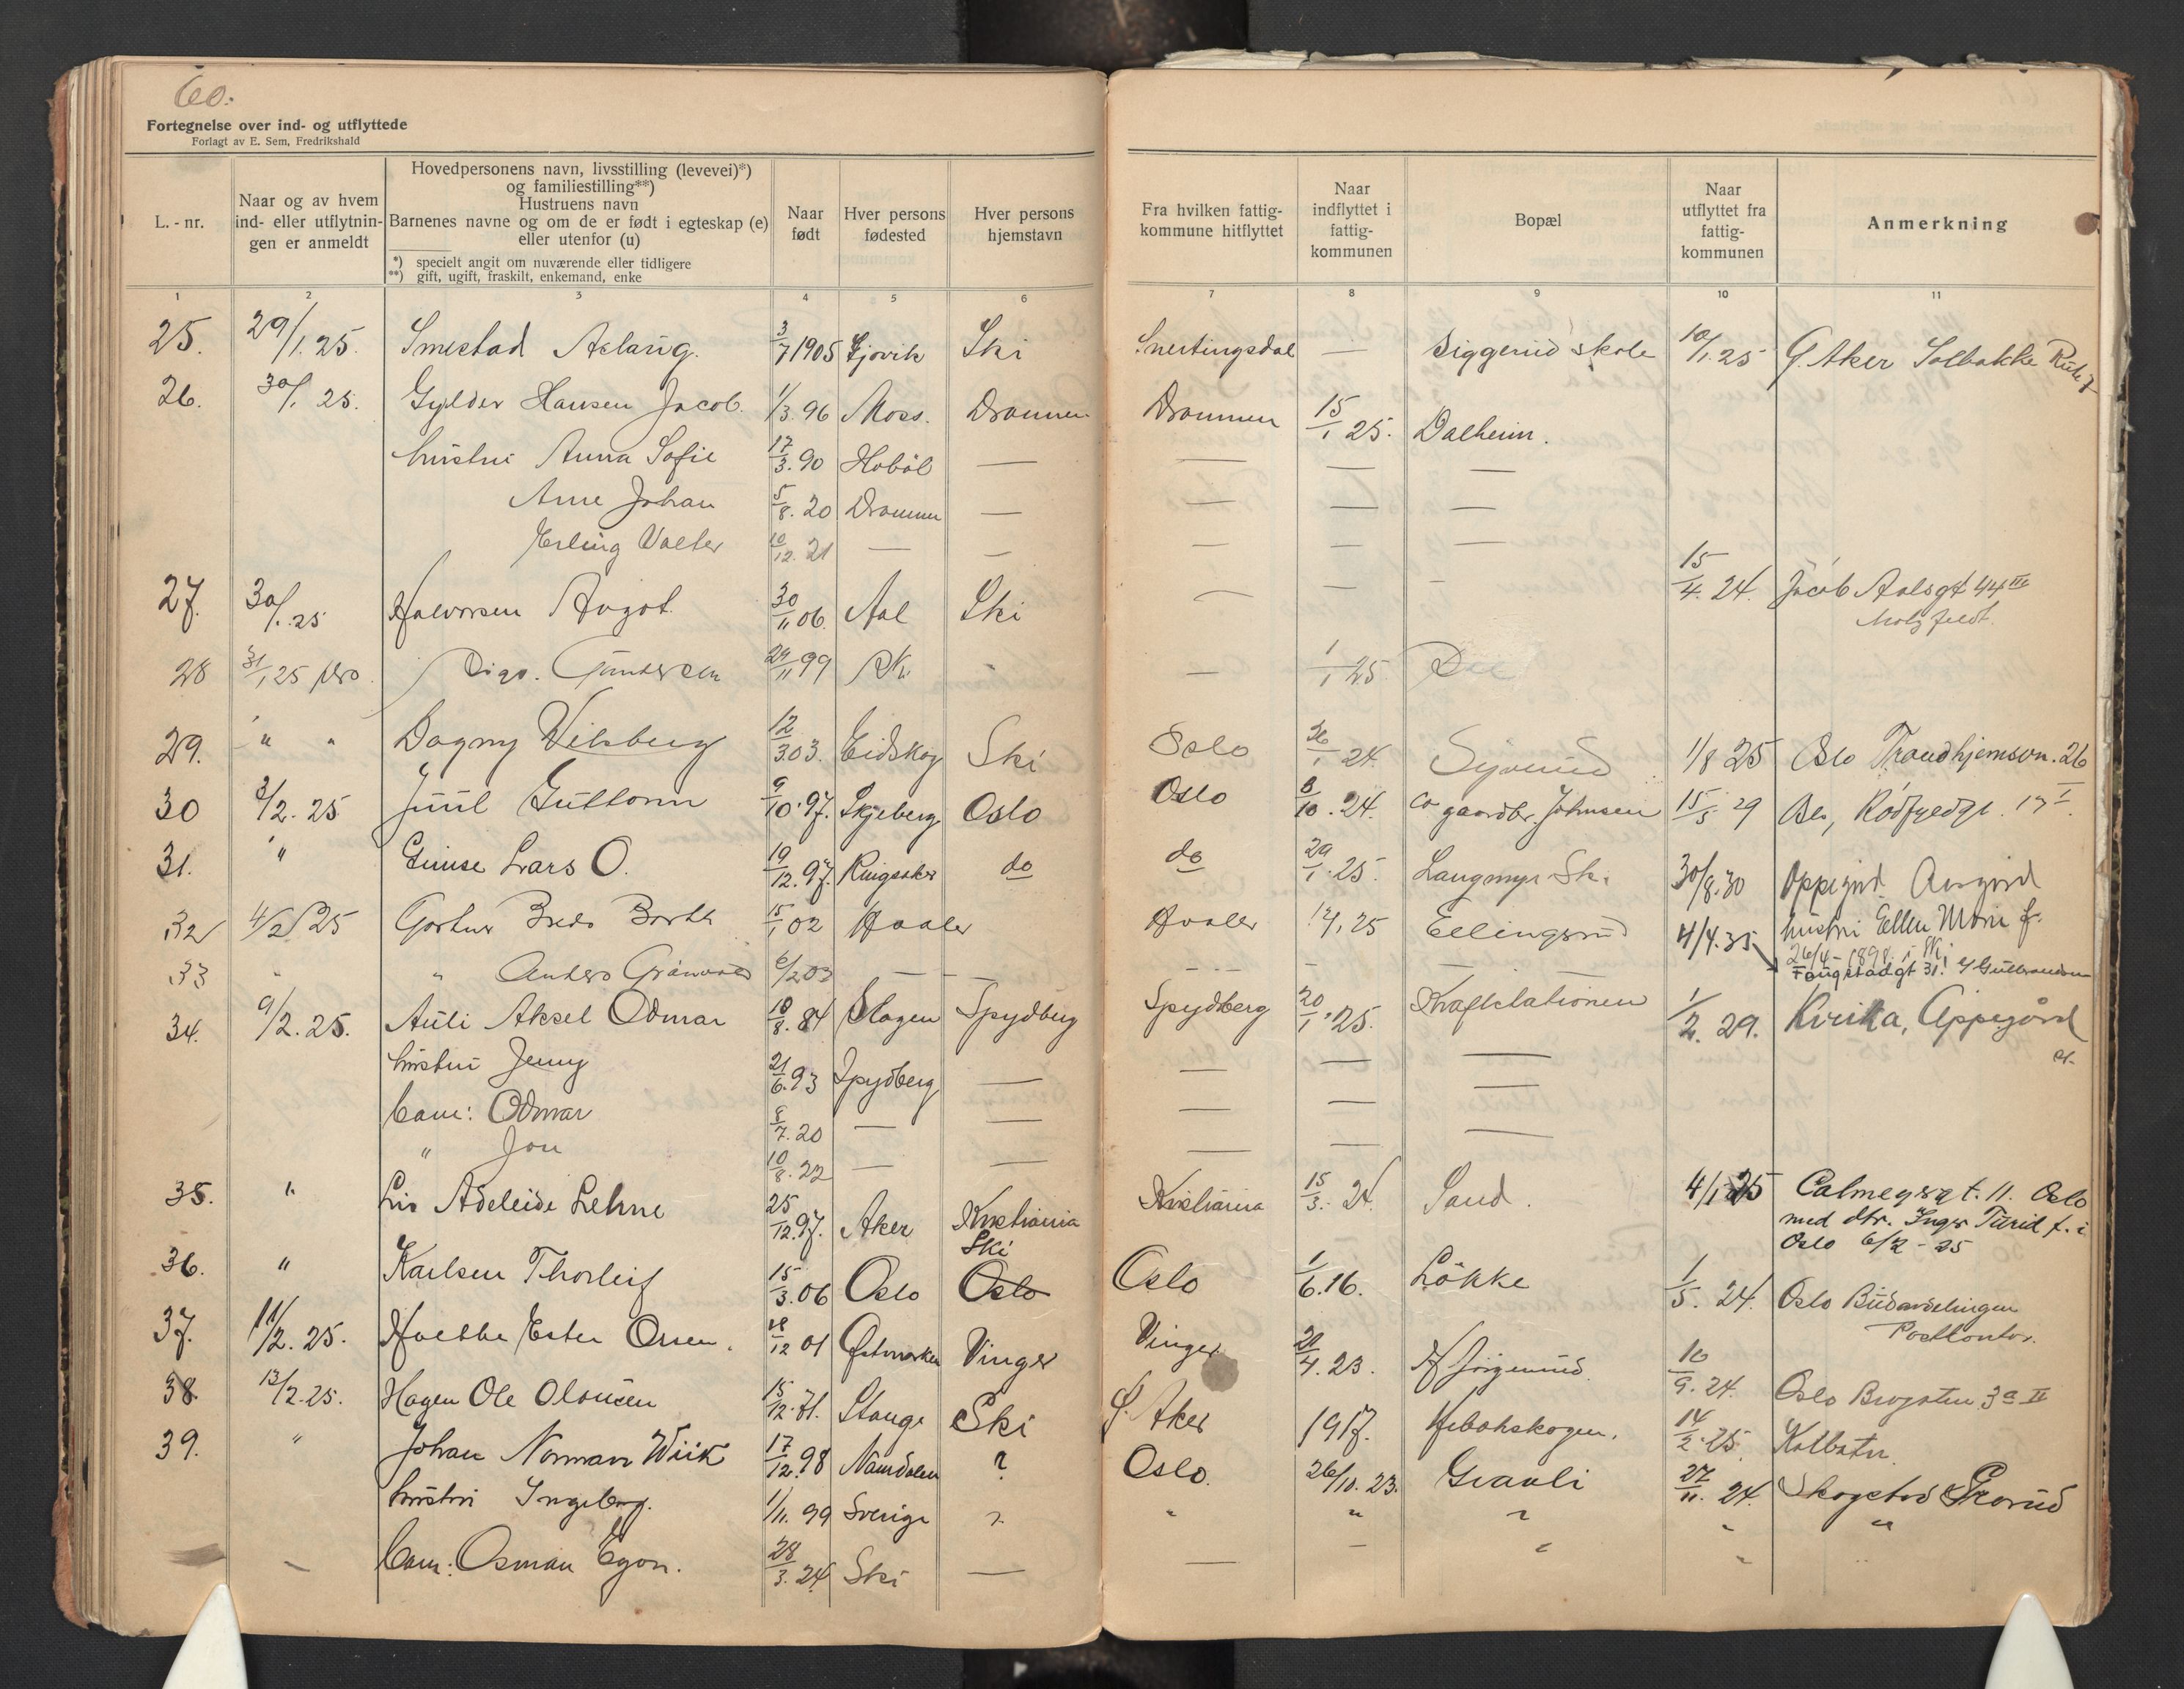 60.
Fortegnelse over ind- og utflyttede
Forlagt av E. Sem, Fredrikshald
L.-nr.
Naar og av hvem
ind- eller utflytnin-
gen er anmeldt
Hovedpersonens navn, livsstilling (levevei)*)
og familiestilling**)
Hustruens navn
Barnenes navne og om de er født i egteskap (e)
eller utenfor (u)
*) specielt angit om nuværende eller tidligere
**) gift, ugift, fraskilt, enkemand, enke
Naar
født
Hver persons
fødested
Hver persons
hjemstavn
Fra hvilken fattig-
kommune hitflyttet
Naar
indflyttet i
fattig-
kommunen
Bopæl
Naar
utflyttet fra
fattig-
kommunen
Anmerkning
1 2 3 4 5 6 7 8 9 10 11
25. 29/1.25. Smestad Aslaug. 3/7 1905 Gjovik Ski Snertingsdal — Siggerud skole 10/1.25 Aker Solbakke
26. 30/1 25. Gylder Hansen Jacob. 1/3.96 Moss. Drammen Drammen 15/1 25. Dalheim.
hustru Anna Sofie 17/3.90 Hobøl — — — —
Arne Johan 5/8.20 Drammen — — — —
Erling Valter 10/12.21 — — — — —
27. 30/1.25 Halvorsen Margot 30/11 06. Aal Ski — — - 15/4.24. Jacob Aalsgt 44 III
28 31/1 25 Gundersen 29/11 99 Sk. - — 1/1 25.
29. " " Dagny Vilsberg 12/3.03. Eidskog Ski Oslo 24. 1/8 25 Oslo Trondhjemsvn. 26
30 3/2.25 Juul Guttorm 9/10.97. Skjeberg Oslo Oslo 8/10.24. co gaardbr. Johnsen 15/5 29
31. " Gimse Lars O. 19/12.97. Ringsaker do do 29/1.25. Langmyr Sk. 30/8.30 Oppegrd.
32 4/2 25 Bredo 15/1 02 Hvaler Hvaler 25 Ellingsrud 4/4.35 hustru Ellen Marie f.
26/4-1898 i Ski
33 " Anders 6/2 03 — — — - — Fougstadgt 31. c/ Gulbrandsen
34. 9/2.25. Auli Aksel Odmar 18/8.84 Slagen Spydberg Spydberg 20/1.25. Kraftstationen 1/2.29. Kvika, Oppegård
hustru Jenny 21/6.93 Spydberg — — — —
barn: Odmar 8/7.20 — — — — —
" Jon 10/8.22 — — — — —
35. " Lis Adeleide Lehne 25/12.97. Aker Kristiania Kristiania 15/3.24. Sand. 4/1 25 Calmeysgt. 11. Oslo
med dtr. Inger Turid f. i
Oslo 6/2-25
Ski
36. " Karlsen Thorleif 15/3.06 Oslo Oslo Oslo 1/6.16. Løkke 1/5.24. Oslo Budavdelingen
Postkontor.
37. 11/2.25. Ester Olsen. 12 01 Østmarken Vinger Vinger 4.23. 10/9.24. Oslo 3a II
38. 13/2.25. Hagen Ole Olausen 15/12.71. Stange Ski Ø. Aker 1917. 14/2.25. Kolbotn.
39. " Johan Norman Wiik 17/12.98 Namdalen ? Oslo. 26/10.23. Granli 27/11.24. Skogstad Grorud
hustru Ingeborg. 1/11.99 Sverige " " " " " "
— Barn: Osman Egon. 28/3.24 Ski — — — " "